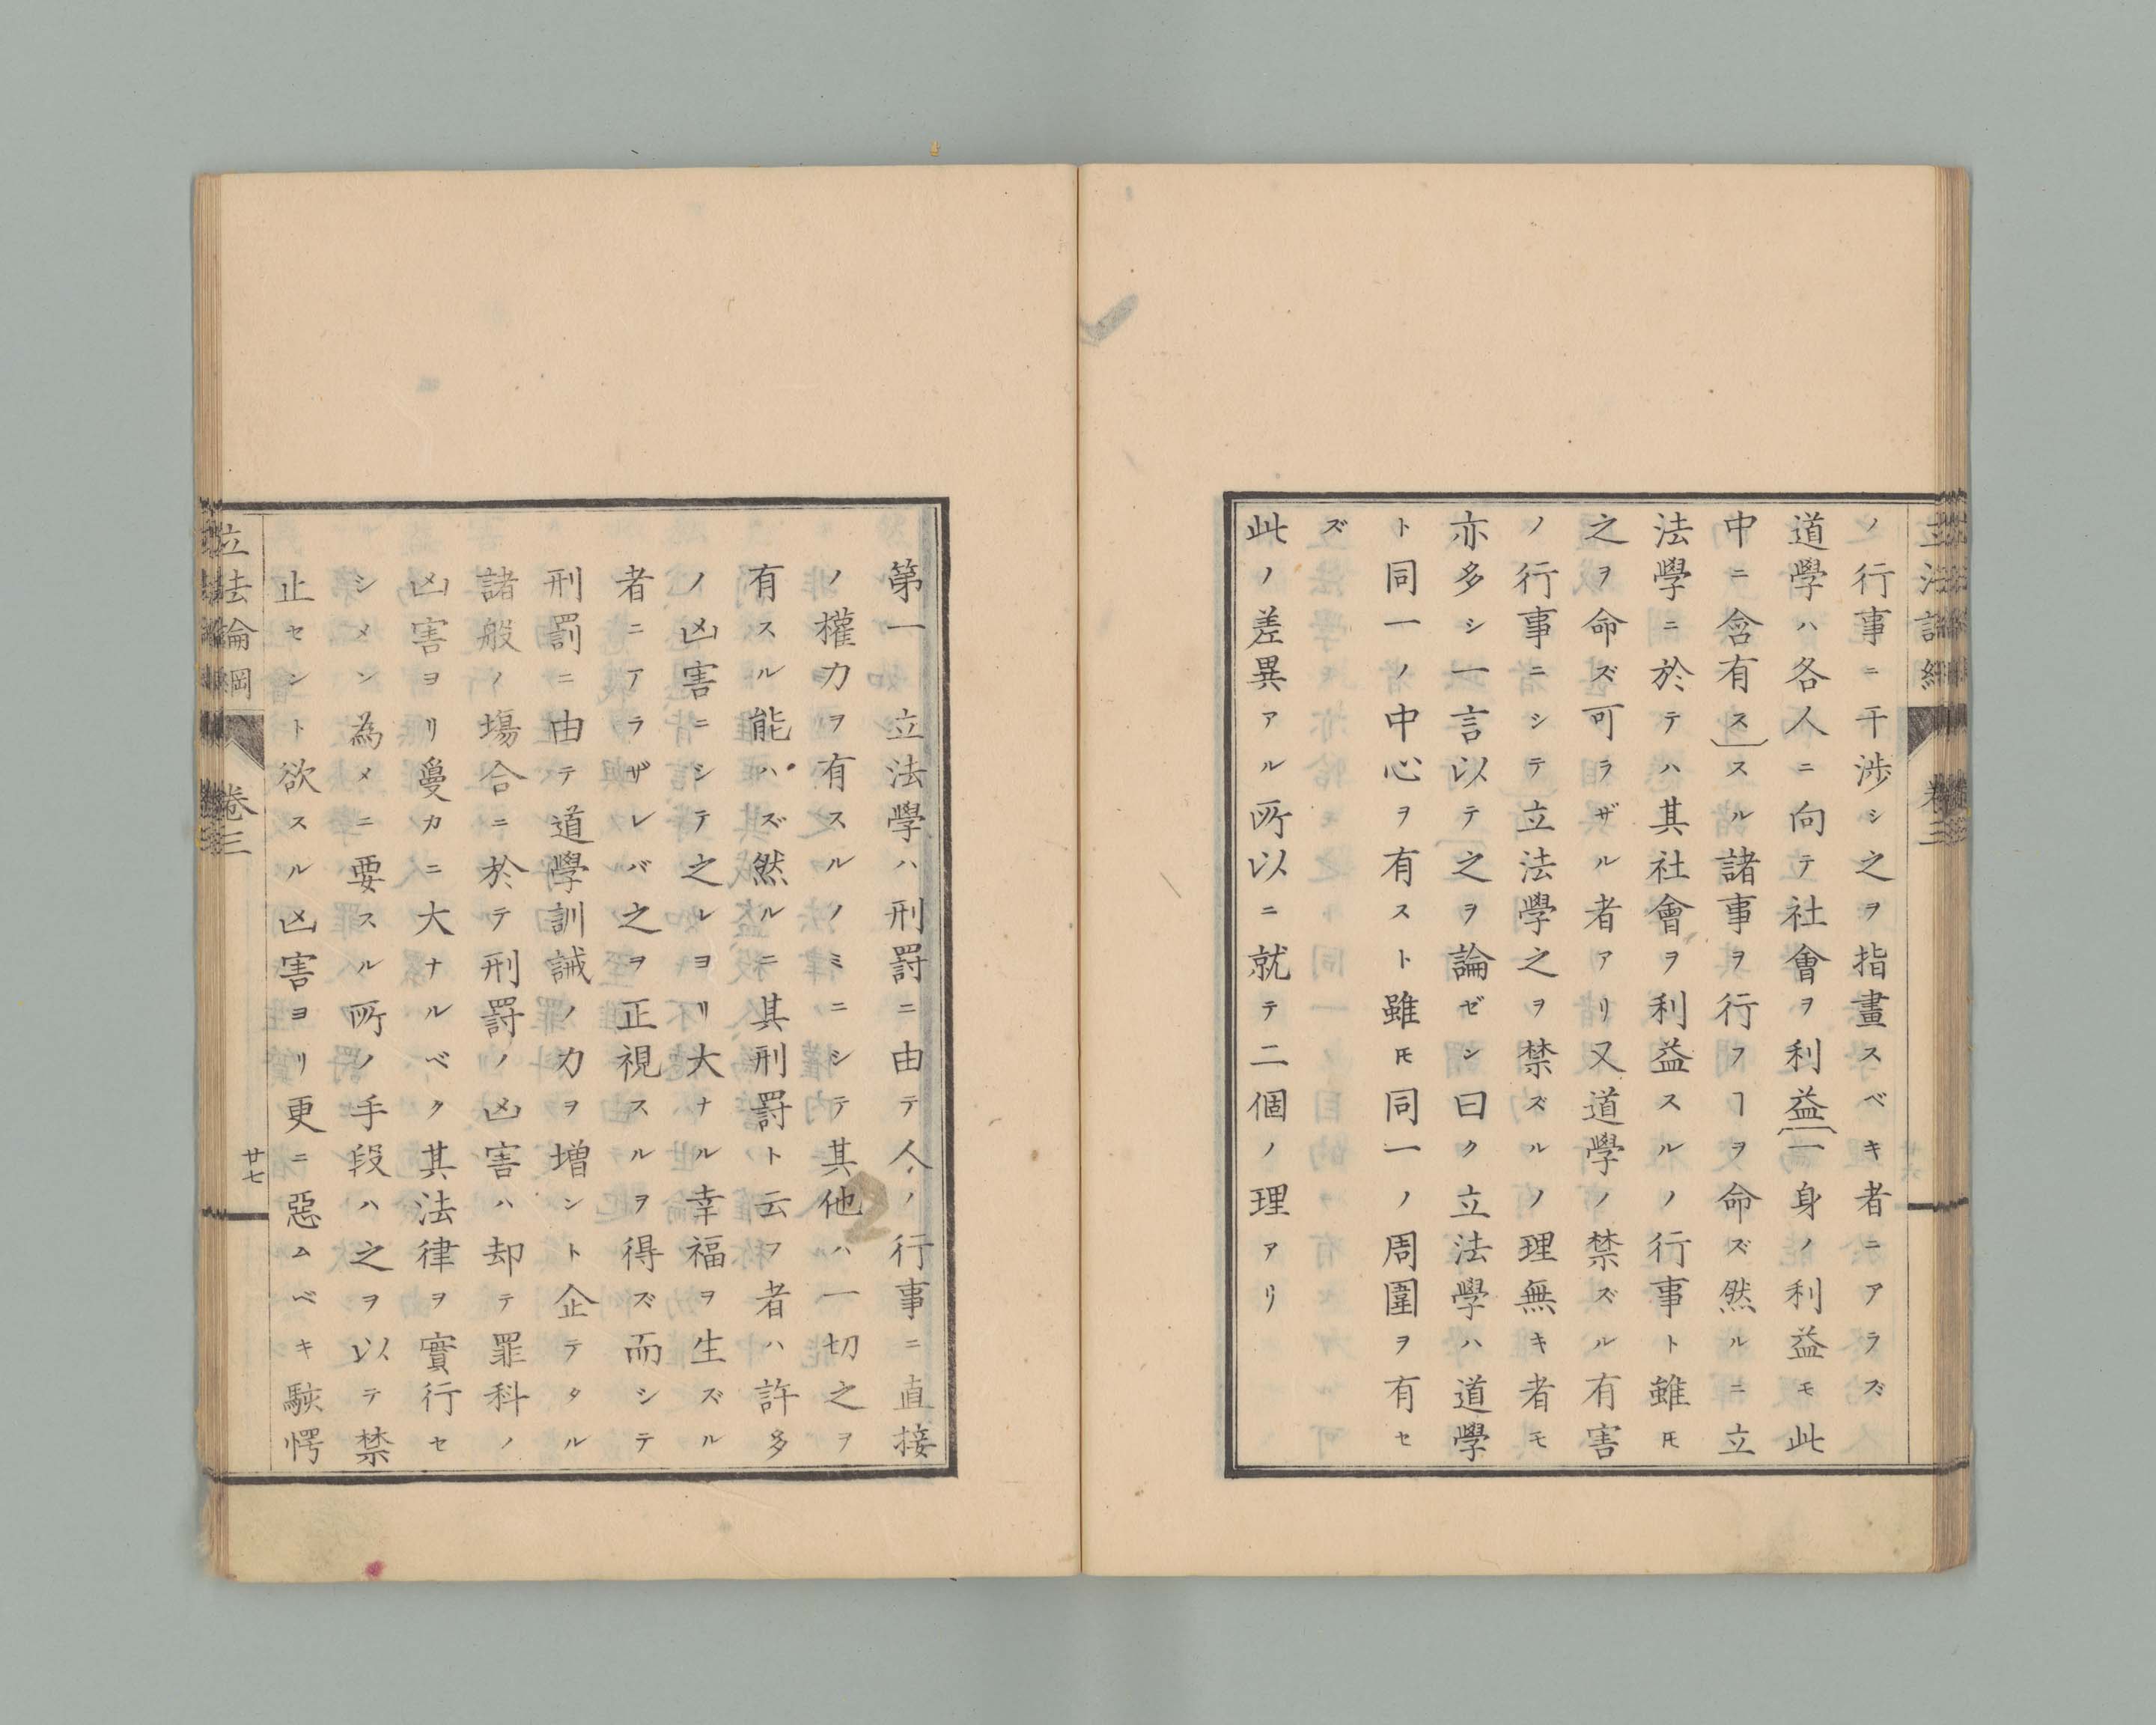 ノ行事ニ干渉シ之ヲ指畫スベキ者ニアラズ
道學ハ各人ニ向テ社會ヲ利益(一身ノ利益モ此
中ニ含有ス)スル諸事ヲ行フヿヲ命ズ然ルニ立
法學ニ於テハ其社會ヲ利益スルノ行事ト雖𪜈
之ヲ命ズ可ラザル者アリ又道學ノ禁ズル有害
ノ行事ニシテ立法學之ヲ禁ズルノ理無キ者モ
亦多シ一言以テ之ヲ論ゼン曰ク立法學ハ道學
ト同一ノ中心ヲ有スト雖𪜈同一ノ周圍ヲ有セ
ズ
此ノ差異アル所以ニ就テ二個ノ理アリ
第一 立法學ハ刑罰ニ由テ人ノ行事ニ直接
ノ權力ヲ有スルノミニシテ其他ハ一切之ヲ
有スル能ハズ然ルニ其刑罰ト云フ者ハ許多
ノ凶害ニシテ之レヨリ大ナル幸福ヲ生ズル
者ニアラザレバ之ヲ正視スルヲ得ズ而シテ
刑罰ニ由テ道學訓誡ノ力ヲ増ント企テタル
諸般ノ塲合ニ於テ刑罰ノ凶害ハ却テ罪科ノ
凶害ヨリ夐カニ大ナルベク其法律ヲ實行セ
シメン為メニ要スル所ノ手段ハ之ヲ以テ禁
止セント欲スル凶害ヨリ更ニ惡ムベキ駭愕
立法論綱
卷三
廿七